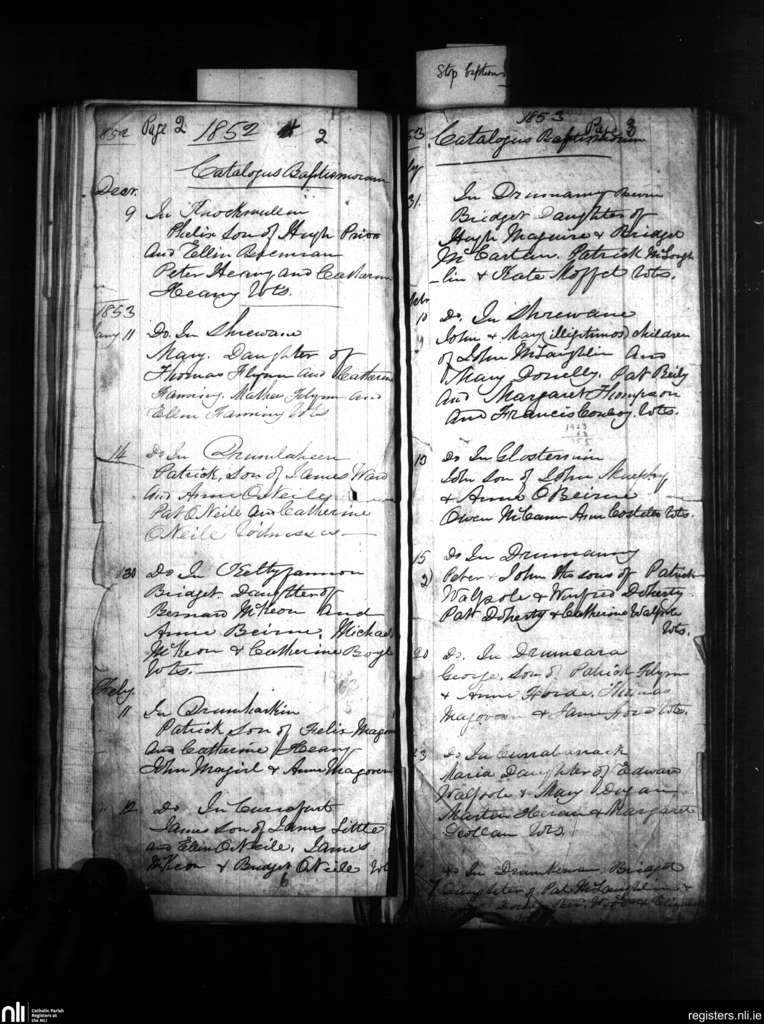 Stop Baptisms
1852 Page 2 1852 2
Catalogus Baptismorum
Decr.
9 In Knockmullin
Phelix son of Hugh Prior
And Ellin Brennan
Peter Heany and Catharine
Heany Wts.
1853
Jany 11 Do. In Shrewane
Mary. Daughter of
Thomas Flynn and Catharine
Fanning. Mathew Flynn and
Ellen Fanning Wts
14 Do In Drumlaheen
Patrick, son of James Ward
And Anne O'Neile
Pat O'Neile and Catherine
O'Neile Witnesses
30 Do In Kettyfannon
Bridget Daughter of
Bernard McKeon and
Anne Beirne. Michael
McKeon & Catherine Boyle
Wts.
Feby.
11 In Drumharkin
Patrick son of Felix
And Catherine Heany
John Magirl & Anne Magovern
12 Do. In
James son of James Little
and Ellen O'Neile. James
McKeon & Bridget O'Neile
6
1853
53 Catalogus Baptismorum Page 3
31. In Drumany Beirn
Bridget Daughter of
Hugh Maguire & Bridget
McCartin. Patrick McLough
-lin & Kate Moffet Wts.
10 Do. In Shrewane
John & Mary illigitimos children
of John McLaughlin and
Mary Donelly. Pat Reily
And Margaret Thompson
And Francis Conboy. Wts.
13 Do In
John son of John Murphy
& Anne O'Beirne
Owen McCann Ann Costello Wts.
15 Do In Drumany
2) Peter & John the sons of Patrick
Walpole & Winfred Doherty
Patt Doherty & Catherine Walpole
Wts.
20 Do. In Drumcara
George. Son of Patrick Flynn
& Anne Forde. Thomas
Magovern & Jane Ford Wts.
23 Do In
Maria Daughter of Edward
Walpole & Mary Dugan
Martin & Margaret
Wts.
Do In Bridget
Daughter of Pat McLaughlin &
nli
Catholic Parish
Registers at
the NLI
registers.nli.ie